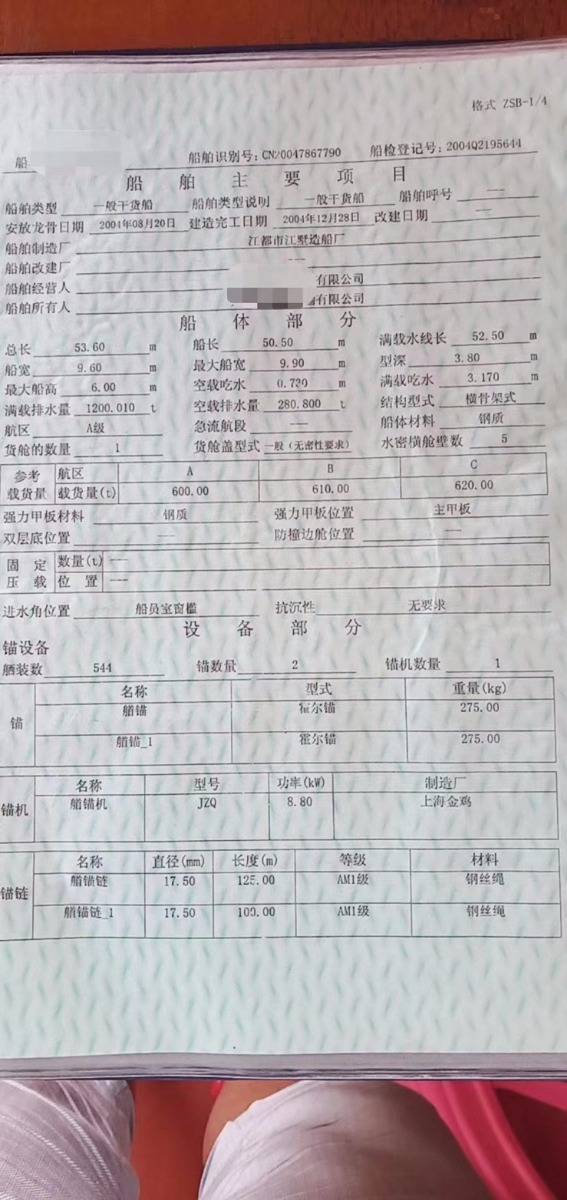 格式 ZSB-1/4
船 船舶识别号:CN20047867790 船检登记号:2004Q2195644
船舶主要项目
船舶类型 一般干货船 船舶类型说明 一般干货船 船舶呼号 ---
安放龙骨日期 2004年08月20日 建造完工日期 2004年12月28日 改建日期 ---
船舶制造厂 江都市江墅造船厂
船舶改建厂 ---
船舶经营人 有限公司
船舶所有人 有限公司
船体部分
总长 53.60 m 船长 50.50 m 满载水线长 52.50 m
船宽 9.60 m 最大船宽 9.90 m 型深 3.80 m
最大船高 6.00 m 空载吃水 0.720 m 满载吃水 3.170 m
满载排水量 1200.010 t 空载排水量 280.800 t 结构型式 横骨架式
航区 A级 急流航段 --- 船体材料 钢质
货舱的数量 1 货舱盖型式 一般(无密性要求) 水密横舱壁数 5
参考 航区 A B C
载货量 载货量(t) 600.00 610.00 620.00
强力甲板材料 钢质 强力甲板位置 主甲板
双层底位置 --- 防撞边舱位置 ---
固定 数量(t) ---
压载 位置 ---
进水角位置 船员室窗槛 抗沉性 无要求
设备部分
锚设备
舾装数 544 锚数量 2 锚机数量 1
锚 名称 型式 重量(kg)
艏锚 霍尔锚 275.00
艏锚_1 霍尔锚 275.00
锚机 名称 型号 功率(kW) 制造厂
艏锚机 JZQ 8.80 上海金鸡
锚链 名称 直径(mm) 长度(m) 等级 材料
艏锚链 17.50 125.00 AM1级 钢丝绳
艏锚链_1 17.50 100.00 AM1级 钢丝绳